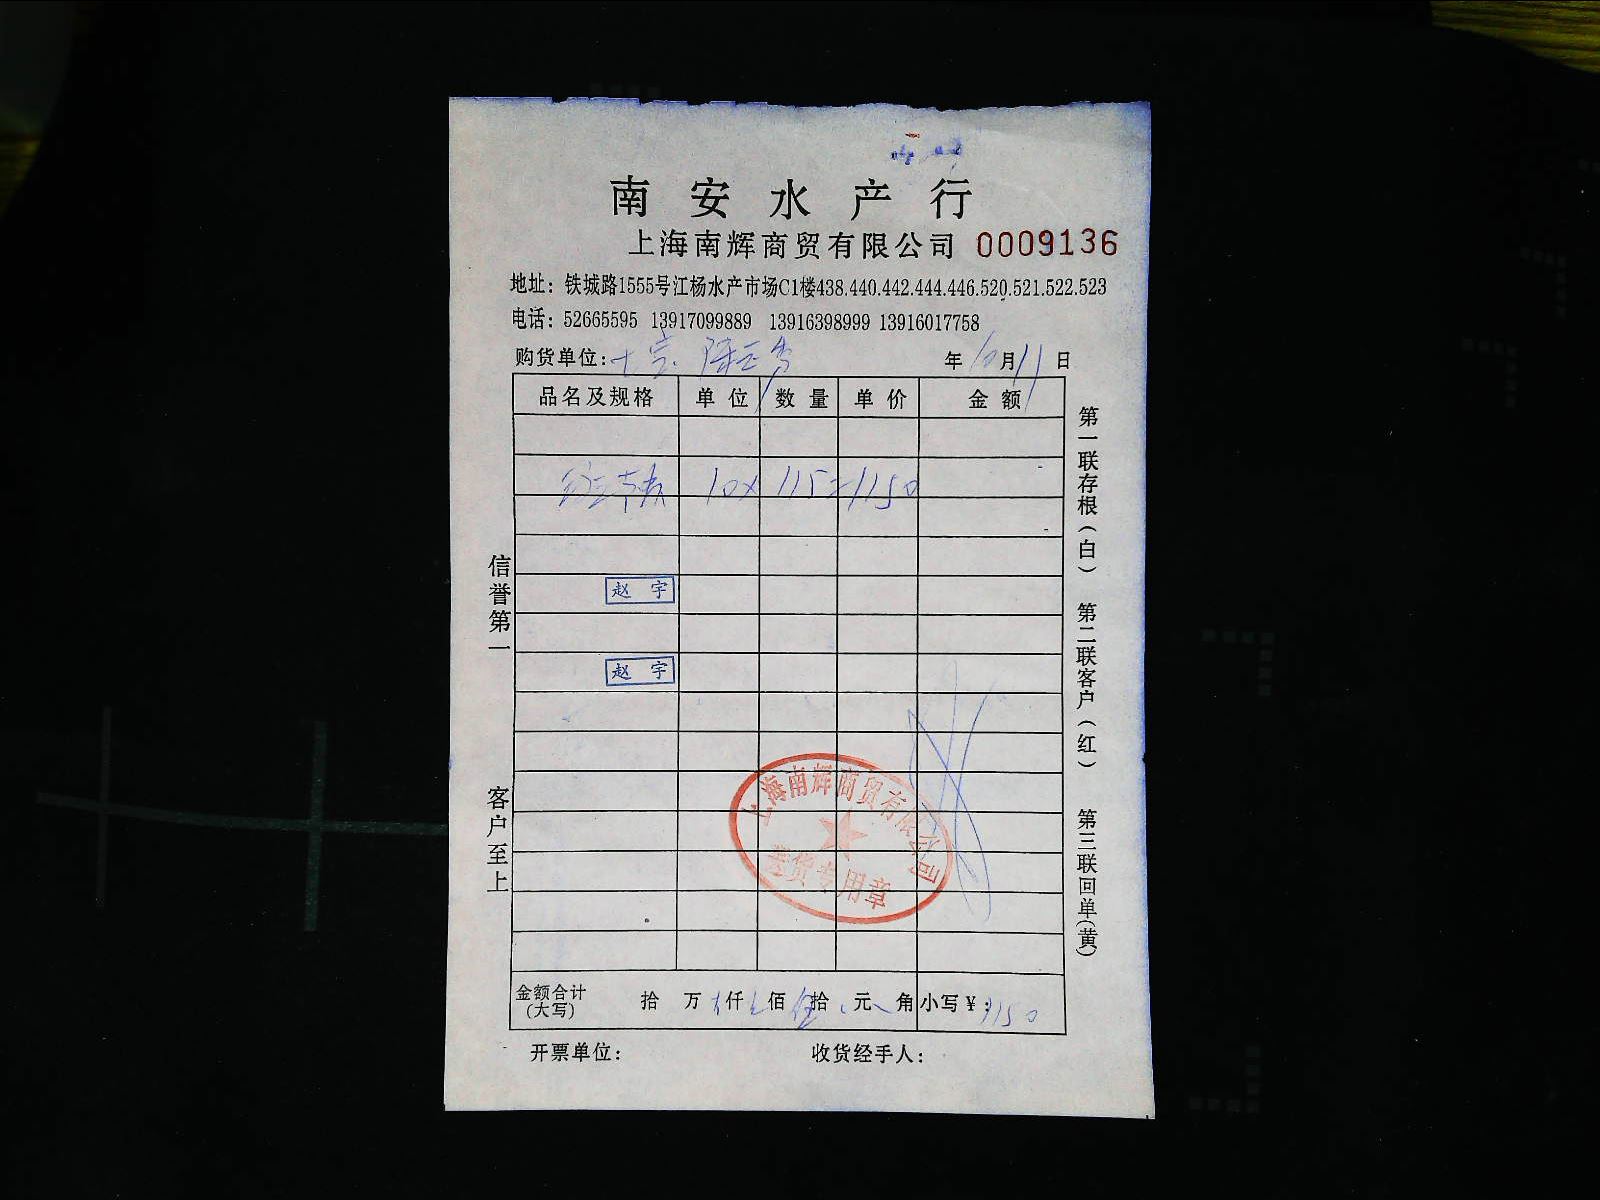 南安水产行
上海南辉商贸有限公司 0009136
地址：铁城路1555号江杨水产市场C1楼438.440.442.444.446.520.521.522.523
电话：52665595 13917099889 13916398999 13916017758
购货单位： 年 10月11日
品名及规格 单位 数量 单价 金额
10× 115=1150
赵宇
赵宇
上海南辉商贸有限公司
专用章
金额合计（大写） 拾 万 仟 佰 伍拾 元 角 小写￥：1150
开票单位： 收货经手人：
信誉第一
客户至上
第一联存根（白）
第二联客户（红）
第三联回单（黄）